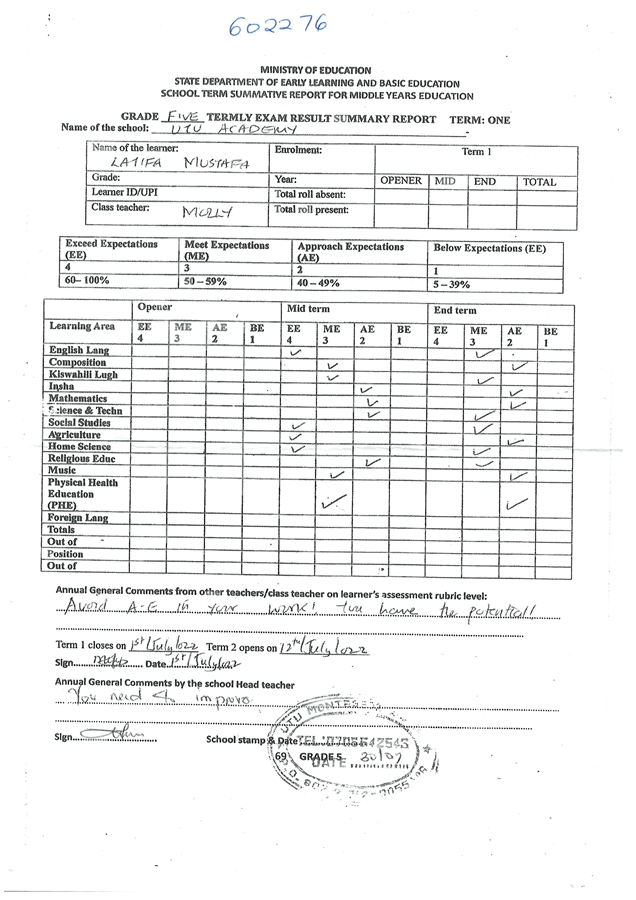 602276
MINISTRY OF EDUCATION
STATE DEPARTMENT OF EARLY LEARNING AND BASIC EDUCATION
SCHOOL TERM SUMMATIVE REPORT FOR MIDDLE YEARS EDUCATION
GRADE FIVE TERMLY EXAM RESULT SUMMARY REPORT TERM: ONE
Name of the school: UTU ACADEMY
Name of the learner: LATIFA MUSTAFA Enrolment: Term 1
Grade: Year: OPENER MID END TOTAL
Learner ID/UPI Total roll absent:
Class teacher: MOLLY Total roll present:
Exceed Expectations (EE) Meet Expectations (ME) Approach Expectations (AE) Below Expectations (EE)
4 3 2 1
60–100% 50–59% 40–49% 5–39%
Opener Mid term End term
Learning Area EE 4 ME 3 AE 2 BE 1 EE 4 ME 3 AE 2 BE 1 EE 4 ME 3 AE 2 BE 1
English Lang ✓ ✓
Composition ✓ ✓
Kiswahili Lugh ✓ ✓
Insha ✓ ✓
Mathematics ✓ ✓
Science & Techn ✓ ✓
Social Studies ✓ ✓
Agriculture ✓ ✓
Home Science ✓ ✓
Religious Educ ✓ ✓
Music ✓ ✓
Physical Health Education (PHE) ✓ ✓
Foreign Lang
Totals
Out of
Position
Out of
Annual General Comments from other teachers/class teacher on learner's assessment rubric level:
Avoid A-E in your work! You have the potential!
Term 1 closes on 1st/July/022 Term 2 opens on 12th/July/022
Sign Date 1st/July/022
Annual General Comments by the school Head teacher
You need to improve
Sign School stamp & Date
UTU MONTESS
TEL: 0705642543
69) GRADE 5
DATE 30/07